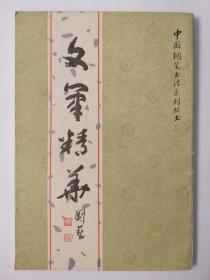 中国钢笔书法系列丛书
文军精华
刘艺